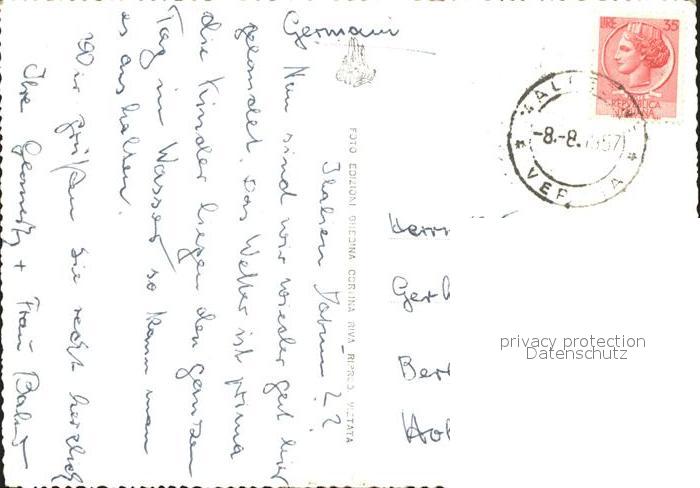 Germani
Italien Datum ??
Nun sind wir wieder gut hier
gelandet. Das Wetter ist prima
die Kinder liegen den ganzen
Tag im Wasser so kann man
es aushalten.
Wir grüßen Sie recht herzlich
Ihre + Frau
FOTO EDIZIONI GHEDINA CORTINA RIVA RIPROD. VIETATA
LIRE 35
REPUBBLICA
ITALIANA
-8.-8.1957
VER
Herrn
Ger
Ber
privacy protection
Datenschutz